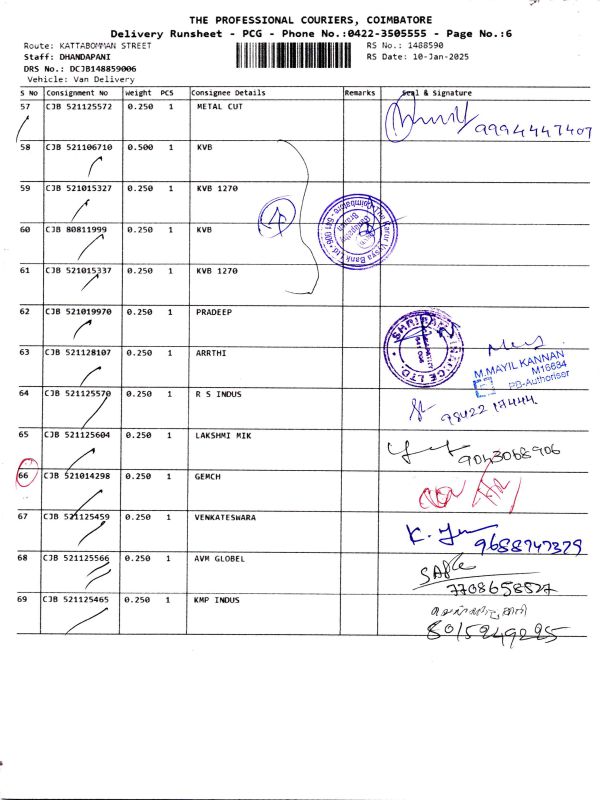 THE PROFESSIONAL COURIERS, COIMBATORE
Delivery Runsheet - PCG - Phone No.:0422-3505555 - Page No.:6
Route: KATTABOMMAN STREET RS No.: 1488590
Staff: DHANDAPANI RS Date: 10-Jan-2025
DRS No.: DCJB148859006
Vehicle: Van Delivery
S No Consignment No Weight PCS Consignee Details Remarks Seal & Signature
57 CJB 521125572 0.250 1 METAL CUT
9994447407
58 CJB 521106710 0.500 1 KVB
59 CJB 521015327 0.250 1 KVB 1270
4
The Karur Vysya Bank Ltd
Coimbatore - 641 006
Ganapathy
Branch
60 CJB 80811999 0.250 1 KVB
61 CJB 521015337 0.250 1 KVB 1270
62 CJB 521019970 0.250 1 PRADEEP
63 CJB 521128107 0.250 1 ARRTHI
M.MAYIL KANNAN
M16634
PB-Authoriser
64 CJB 521125570 0.250 1 R S INDUS
98422 17444
65 CJB 521125604 0.250 1 LAKSHMI MIK
9043068906
66 CJB 521014298 0.250 1 GEMCH
67 CJB 521125459 0.250 1 VENKATESWARA
9688747379
68 CJB 521125566 0.250 1 AVM GLOBEL
7708658527
69 CJB 521125465 0.250 1 KMP INDUS
8015949295